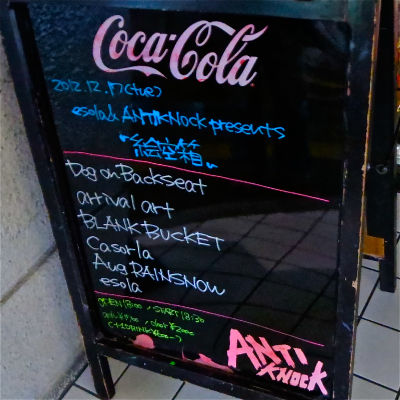 Coca-Cola
2012.12.17(tue)
esola & ANTIKNOCK presents
"絵空箱"
Dog on Backseat
arrival art
BLANK BUCKET
Casorla
Aug RAINSNOW
esola
OPEN 18:00 / START 18:30
ANTI
KNOCK